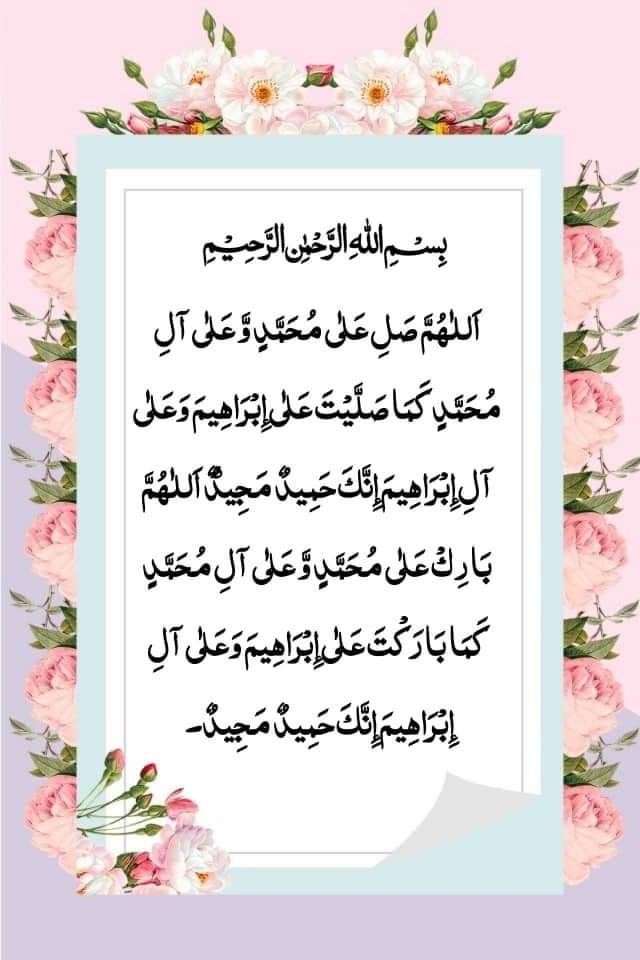 بِسْمِ اللهِ الرَّحْمٰنِ الرَّحِيْمِ
اَللٰهُمَّ صَلِ عَلٰى مُحَمَّدٍ وَّ عَلٰى آلِ
مُحَمَّدٍ كَمَا صَلَّيْتَ عَلٰى إِبْرَاهِيمَ وَعَلٰى
آلِ إِبْرَاهِيمَ إِنَّكَ حَمِيدٌ مَجِيدٌ اَللٰهُمَّ
بَارِكْ عَلٰى مُحَمَّدٍ وَّ عَلٰى آلِ مُحَمَّدٍ
كَمَا بَارَكْتَ عَلٰى إِبْرَاهِيمَ وَعَلٰى آلِ
إِبْرَاهِيمَ إِنَّكَ حَمِيدٌ مَجِيدٌ۔